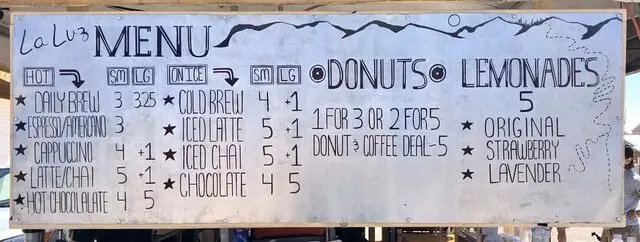 La Luz MENU
HOT SM LG
★ DAILY BREW 3 3.25
★ ESPRESSO/AMERICANO 3
★ CAPPUCCINO 4 +1
★ LATTE/CHAI 5 +1
★ HOT CHOCOLALATE 4 5
ON ICE SM LG
★ COLD BREW 4 +1
★ ICED LATTE 5 +1
★ ICED CHAI 5 +1
★ CHOCOLATE 4 5
DONUTS
1 FOR 3 OR 2 FOR 5
DONUT & COFFEE DEAL-5
LEMONADES
5
★ ORIGINAL
★ STRAWBERRY
★ LAVENDER